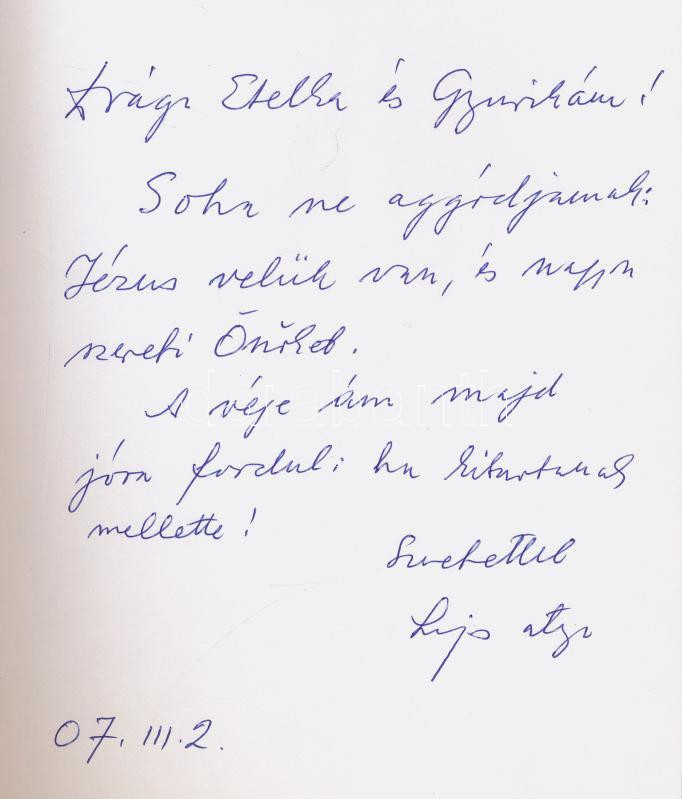 Drága Etelka és Gyurikám!
Soha ne aggódjanak:
Jézus velük van, és nagyon
szereti Önöket.
A vége ám majd
jóra fordul: ha kitartanak
mellette!
Szeretettel
Lajos atya
07. III. 2.
darabanth